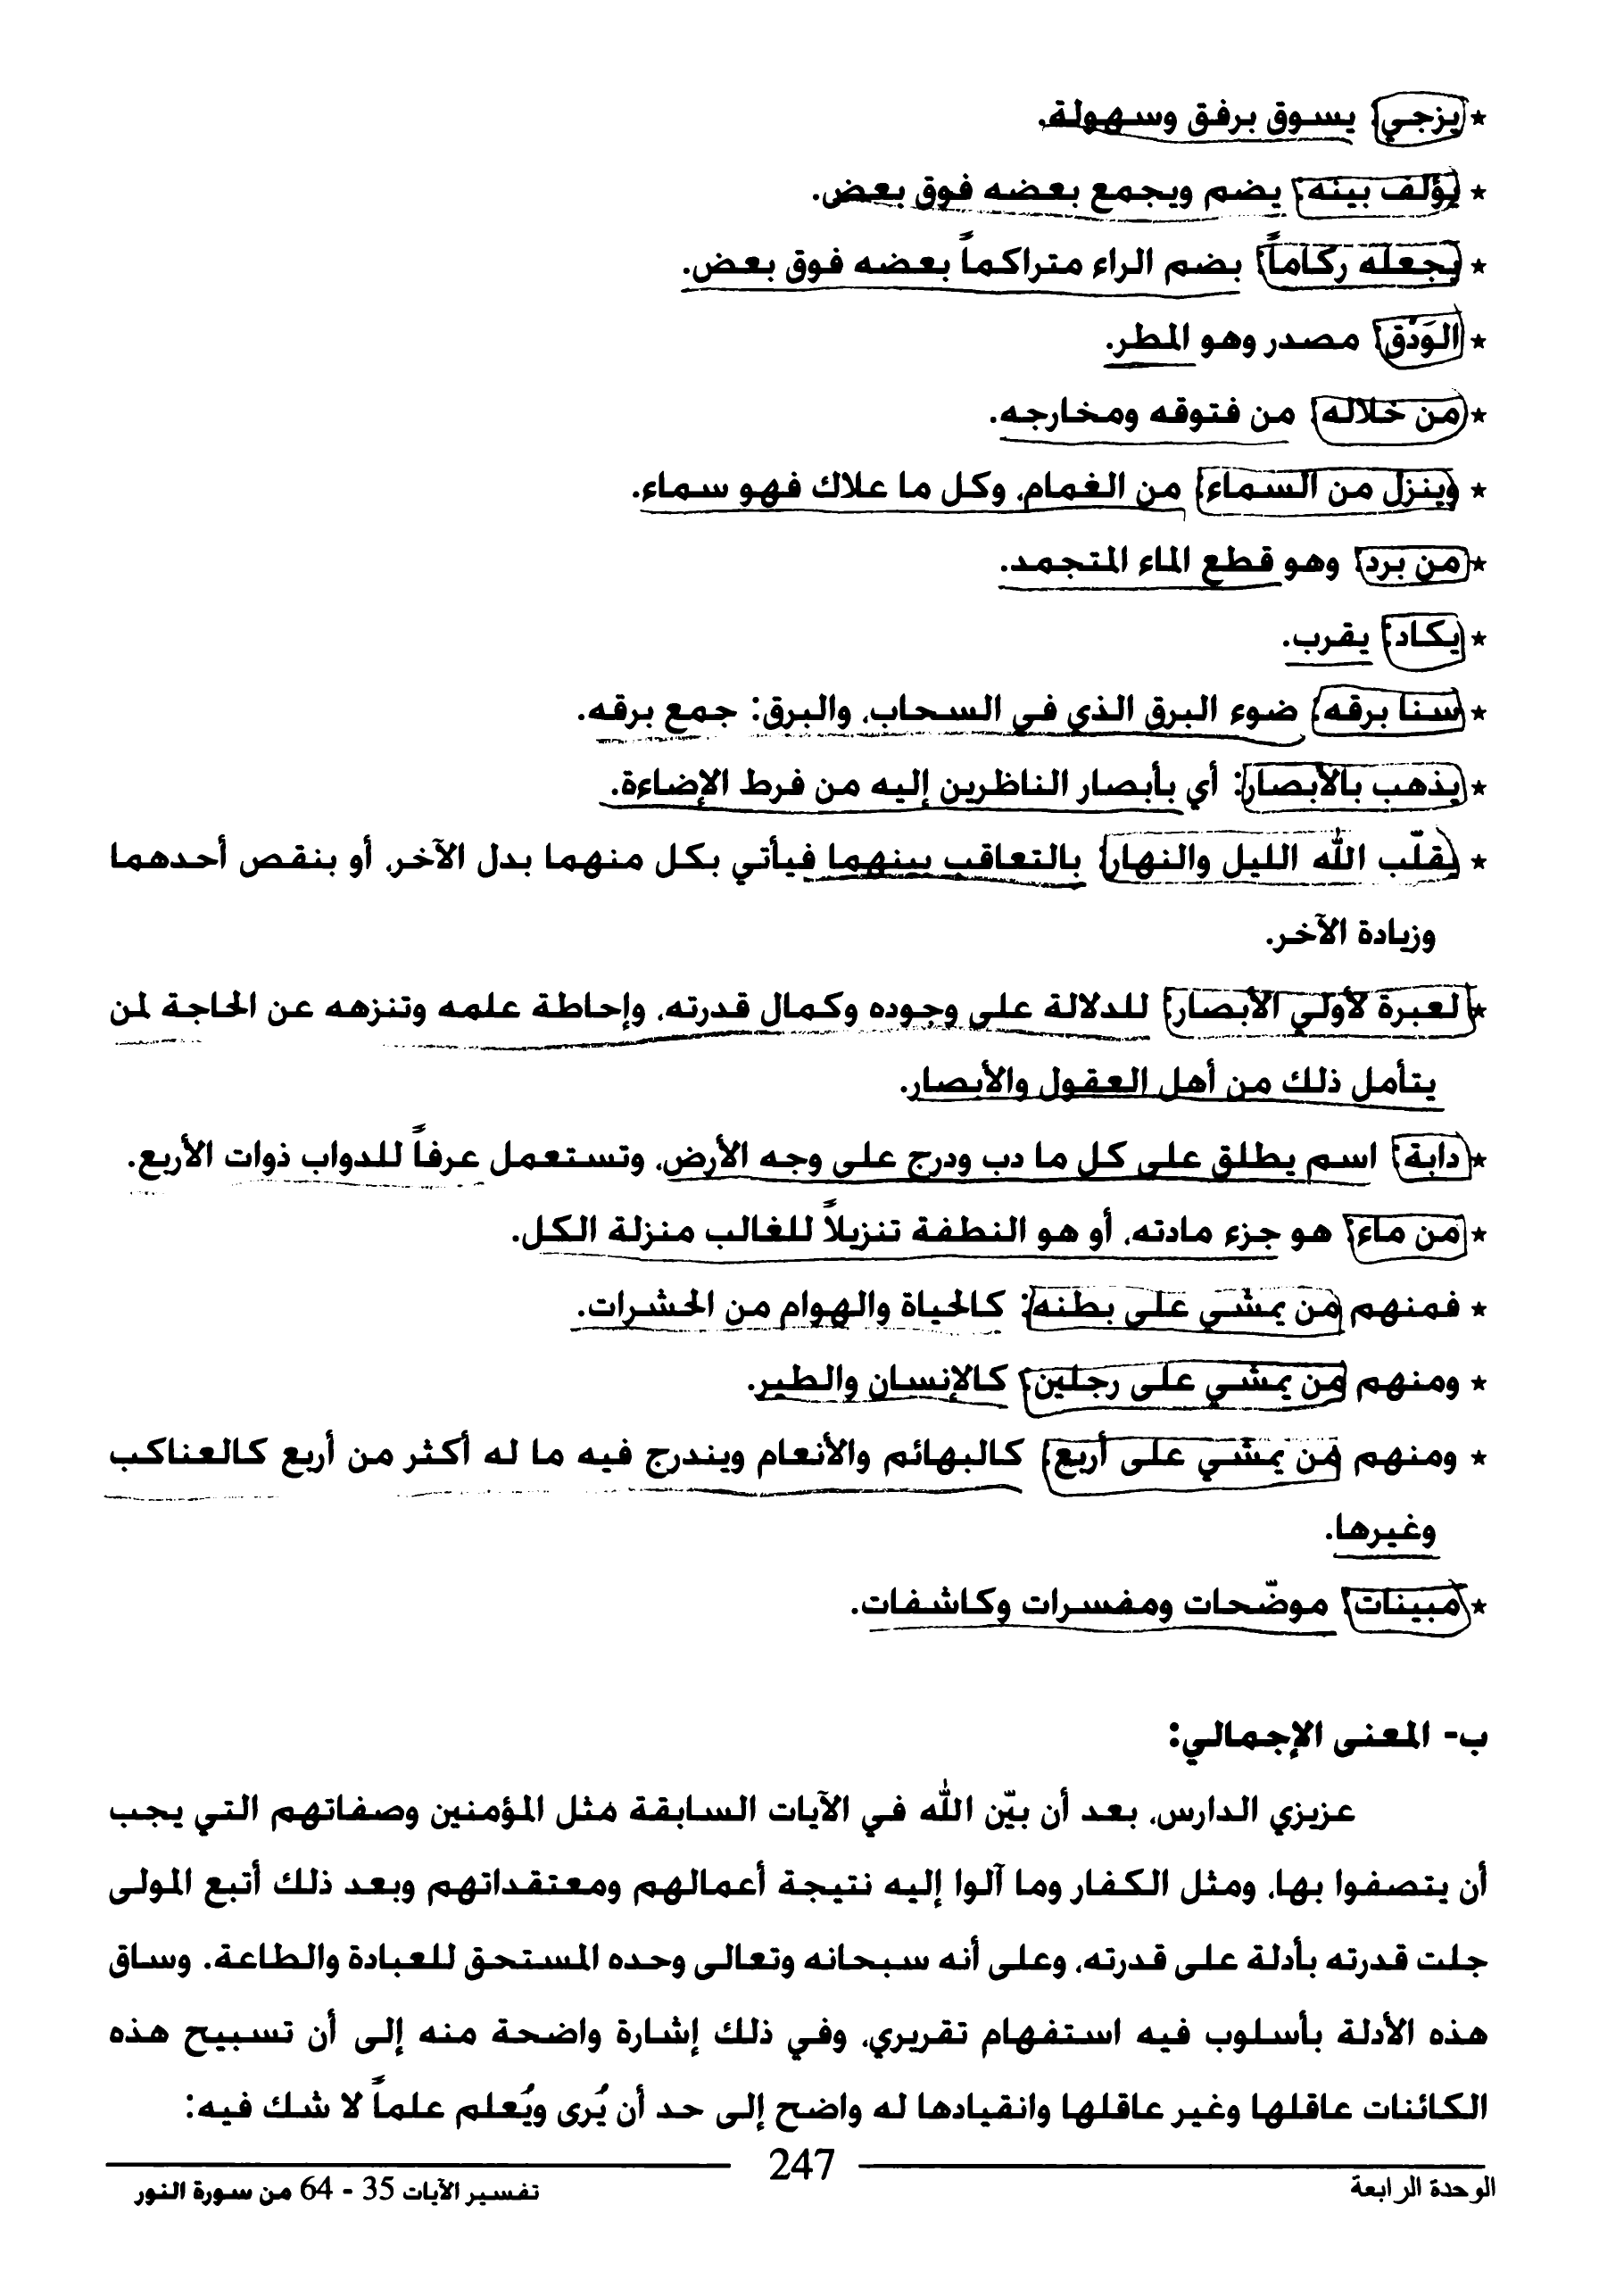 * يزجي: يسوق برفق وسهولة.
* يؤلف بينه: يضم ويجمع بعضه فوق بعض.
* يجعله ركاماً: بضم الراء متراكماً بعضه فوق بعض.
* الوَدْق: مصدر وهو المطر.
* من خلاله: من فتوقه ومخارجه.
* وينزل من السماء: من الغمام، وكل ما علاك فهو سماء.
* من برد: وهو قطع الماء المتجمد.
* يكاد: يقرب.
* سنا برقه: ضوء البرق الذي في السحاب، والبرق: جمع برقه.
* يذهب بالأبصار: أي بأبصار الناظرين إليه من فرط الإضاءة.
* يقلّب الله الليل والنهار: بالتعاقب بينهما فيأتي بكل منهما بدل الآخر، أو بنقص أحدهما
وزيادة الآخر.
* لعبرة لأولي الأبصار: للدلالة على وجوده وكمال قدرته، وإحاطة علمه وتنزهه عن الحاجة لمن
يتأمل ذلك من أهل العقول والأبصار.
* دابة: اسم يطلق على كل ما دب ودرج على وجه الأرض، وتستعمل عرفاً للدواب ذوات الأربع.
* من ماء: هو جزء مادته، أو هو النطفة تنزيلاً للغالب منزلة الكل.
* فمنهم من يمشي على بطنه: كالحياة والهوام من الحشرات.
* ومنهم من يمشي على رجلين: كالإنسان والطير.
* ومنهم من يمشي على أربع: كالبهائم والأنعام ويندرج فيه ما له أكثر من أربع كالعناكب
وغيرها.
* مبينات: موضّحات ومفسرات وكاشفات.
ب- المعنى الإجمالي:
عزيزي الدارس، بعد أن بيّن الله في الآيات السابقة مثل المؤمنين وصفاتهم التي يجب
أن يتصفوا بها، ومثل الكفار وما آلوا إليه نتيجة أعمالهم ومعتقداتهم وبعد ذلك أتبع المولى
جلت قدرته بأدلة على قدرته، وعلى أنه سبحانه وتعالى وحده المستحق للعبادة والطاعة. وساق
هذه الأدلة بأسلوب فيه استفهام تقريري، وفي ذلك إشارة واضحة منه إلى أن تسبيح هذه
الكائنات عاقلها وغير عاقلها وانقيادها له واضح إلى حد أن يُرى ويُعلم علماً لا شك فيه:
247
الوحدة الرابعة
تفسير الآيات 35 - 64 من سورة النور